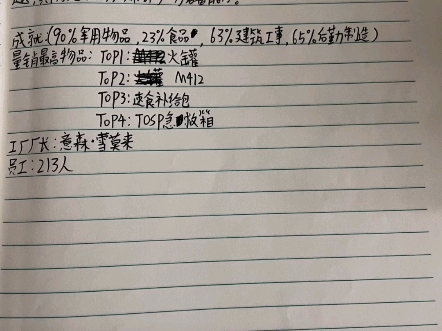 成就:(90%军用物品,23%食品,63%建筑工事,65%后勤制造)
量销最高物品:TOP1:火罐
TOP2:M412
TOP3:速食补给包
TOP4:TOSP急救箱
工厂厂长:意森·雪莫来
员工:213人